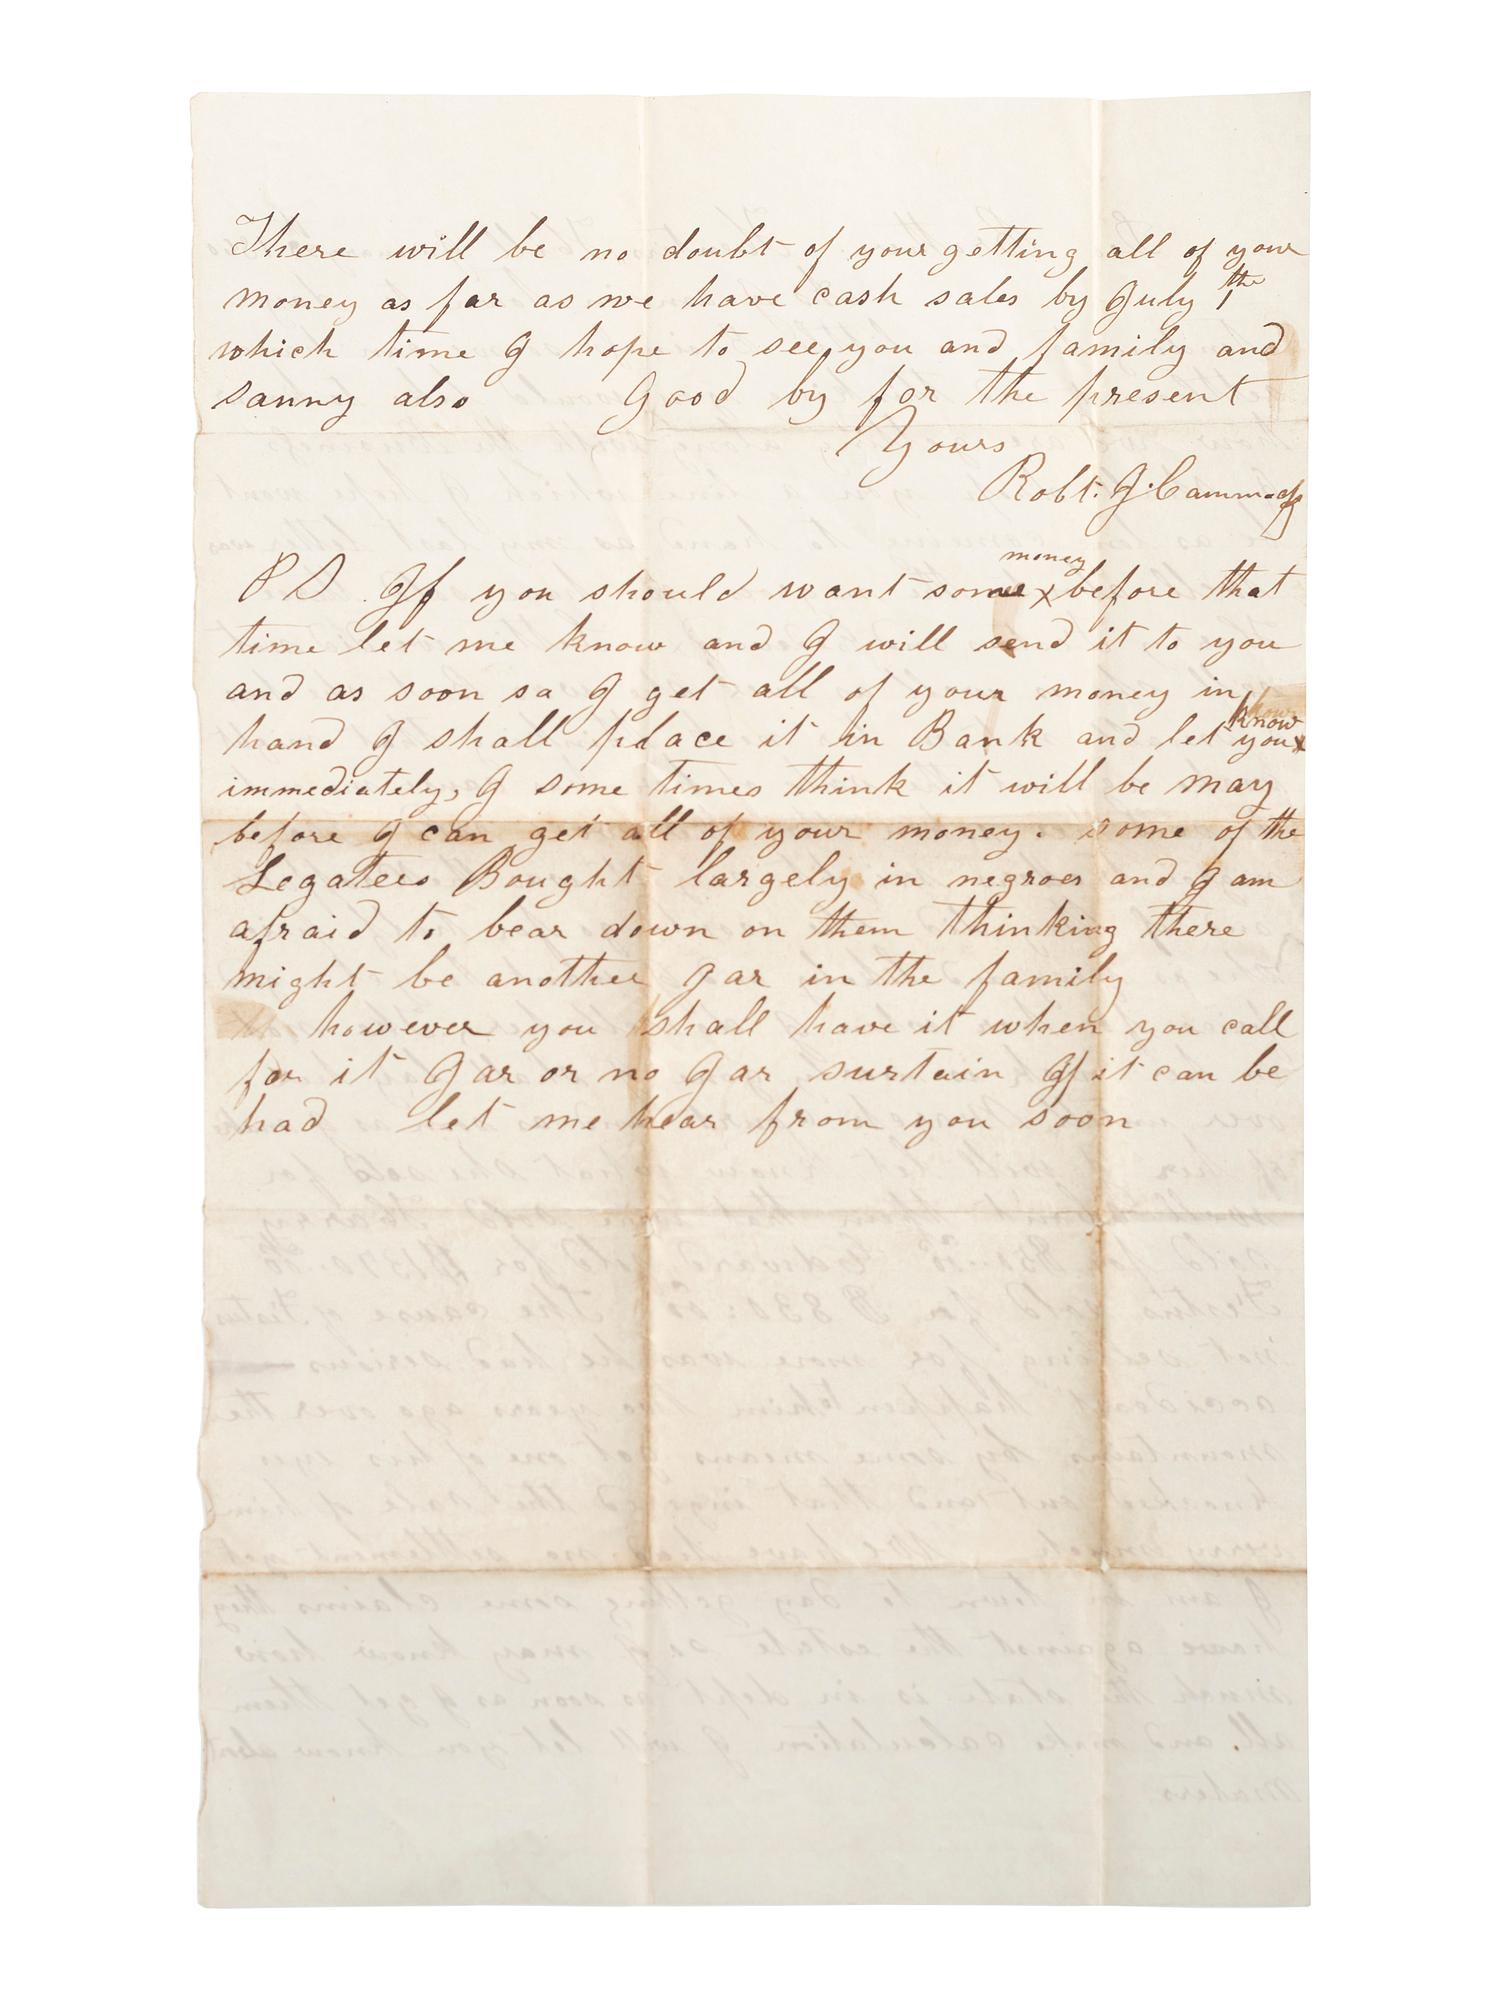 There will be no doubt of your getting all of your
money as far as we have cash sales by July 1the
which time I hope to see you and family and
sanny also Good by for the present
Yours
Robt. J. Cammack
P S If you should want some money before that
time let me know and I will send it to you
and as soon sa I get all of your money in
hand I shall place it in Bank and let you know
immediately, I some times think it will be may
before I can get all of your money. some of the
Legatees Bought largely in negroes and I am
afraid to bear down on them thinking there
might be another jar in the family
however you shall have it when you call
for it Jar or no Jar surtain If it can be
had let me hear from you soon